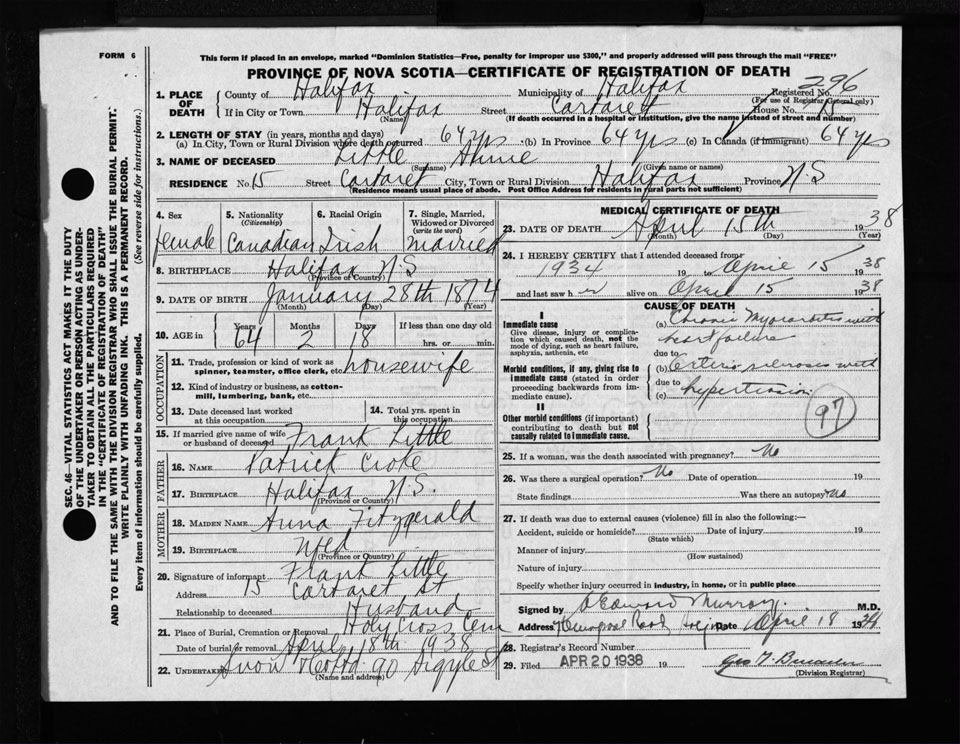 FORM 6
This form if placed in an envelope, marked "Dominion Statistics—Free, penalty for improper use $300," and properly addressed will pass through the mail "FREE"
PROVINCE OF NOVA SCOTIA—CERTIFICATE OF REGISTRATION OF DEATH
296
1. PLACE OF DEATH
County of Halifax Municipality of Halifax Registered No.
(For use of Registrar General only)
If in City or Town Halifax Street Cartaret House No. 15
(Name) (If death occurred in a hospital or institution, give the name instead of street and number)
2. LENGTH OF STAY (in years, months and days)
(a) In City, Town or Rural Division where death occurred 64 yrs (b) In Province 64 yrs (c) In Canada (if immigrant) 64 yrs
3. NAME OF DECEASED Little Annie
(Surname) (Given name or names)
RESIDENCE No. 15 Street Cartaret City, Town or Rural Division Halifax Province N.S
(Residence means usual place of abode. Post Office Address for residents in rural parts not sufficient)
4. Sex 5. Nationality (Citizenship) 6. Racial Origin 7. Single, Married, Widowed or Divorced (write the word)
female Canadian Irish married
8. BIRTHPLACE Halifax N.S
(Province or Country)
9. DATE OF BIRTH January 28th 1874
(Month) (Day) (Year)
10. AGE in Years Months Days If less than one day old
64 2 18 hrs. or min.
OCCUPATION
11. Trade, profession or kind of work as spinner, teamster, office clerk, etc. housewife
12. Kind of industry or business, as cotton-mill, lumbering, bank, etc.
13. Date deceased last worked at this occupation
14. Total yrs. spent in this occupation
15. If married give name of wife or husband of deceased Frank Little
FATHER
16. NAME Patrick Croke
17. BIRTHPLACE Halifax N.S.
(Province or Country)
MOTHER
18. MAIDEN NAME Anna Fitzgerald
19. BIRTHPLACE Nfld
(Province or Country)
20. Signature of informant Frank Little
Address 15 Cartaret St
Relationship to deceased Husband
21. Place of Burial, Cremation or Removal Holy Cross Cem
Date of burial or removal April 18th 1938
22. Undertaker Snow & Co Ltd 90 Argyle St
(Name and address)
MEDICAL CERTIFICATE OF DEATH
23. DATE OF DEATH April 15th 1938
(Month) (Day) (Year)
24. I HEREBY CERTIFY that I attended deceased from
1934 19 to April 15 1938
and last saw her alive on April 15 1938
CAUSE OF DEATH
I
Immediate cause
Give disease, injury or complication which caused death, not the mode of dying, such as heart failure, asphyxia, asthenia, etc
(a) Chronic Myocarditis with heart failure
due to
Morbid conditions, if any, giving rise to immediate cause (stated in order proceeding backwards from immediate cause).
(b) Arterio sclerosis with
due to
(c) hypertension
97
II
Other morbid conditions (if important) contributing to death but not causally related to immediate cause.
25. If a woman, was the death associated with pregnancy? No
26. Was there a surgical operation? No Date of operation 19
State findings Was there an autopsy? No
27. If death was due to external causes (violence) fill in also the following:—
Accident, suicide or homicide? Date of injury 19
(State which)
Manner of injury
(How sustained)
Nature of injury
Specify whether injury occurred in industry, in home, or in public place
Signed by Edward Murray. M.D.
Address Date April 18 1938
28. Registrar's Record Number
29. Filed APR 20 1938 19
(Division Registrar)
SEC. 46—VITAL STATISTICS ACT MAKES IT THE DUTY
OF THE UNDERTAKER OR PERSON ACTING AS UNDER-
TAKER TO OBTAIN ALL THE PARTICULARS REQUIRED
IN THE "CERTIFICATE OF REGISTRATION OF DEATH"
AND TO FILE THE SAME WITH THE DIVISION REGISTRAR WHO SHALL ISSUE THE BURIAL PERMIT.
WRITE PLAINLY WITH UNFADING INK. THIS IS A PERMANENT RECORD.
Every item of information should be carefully supplied. (See reverse side for instructions.)